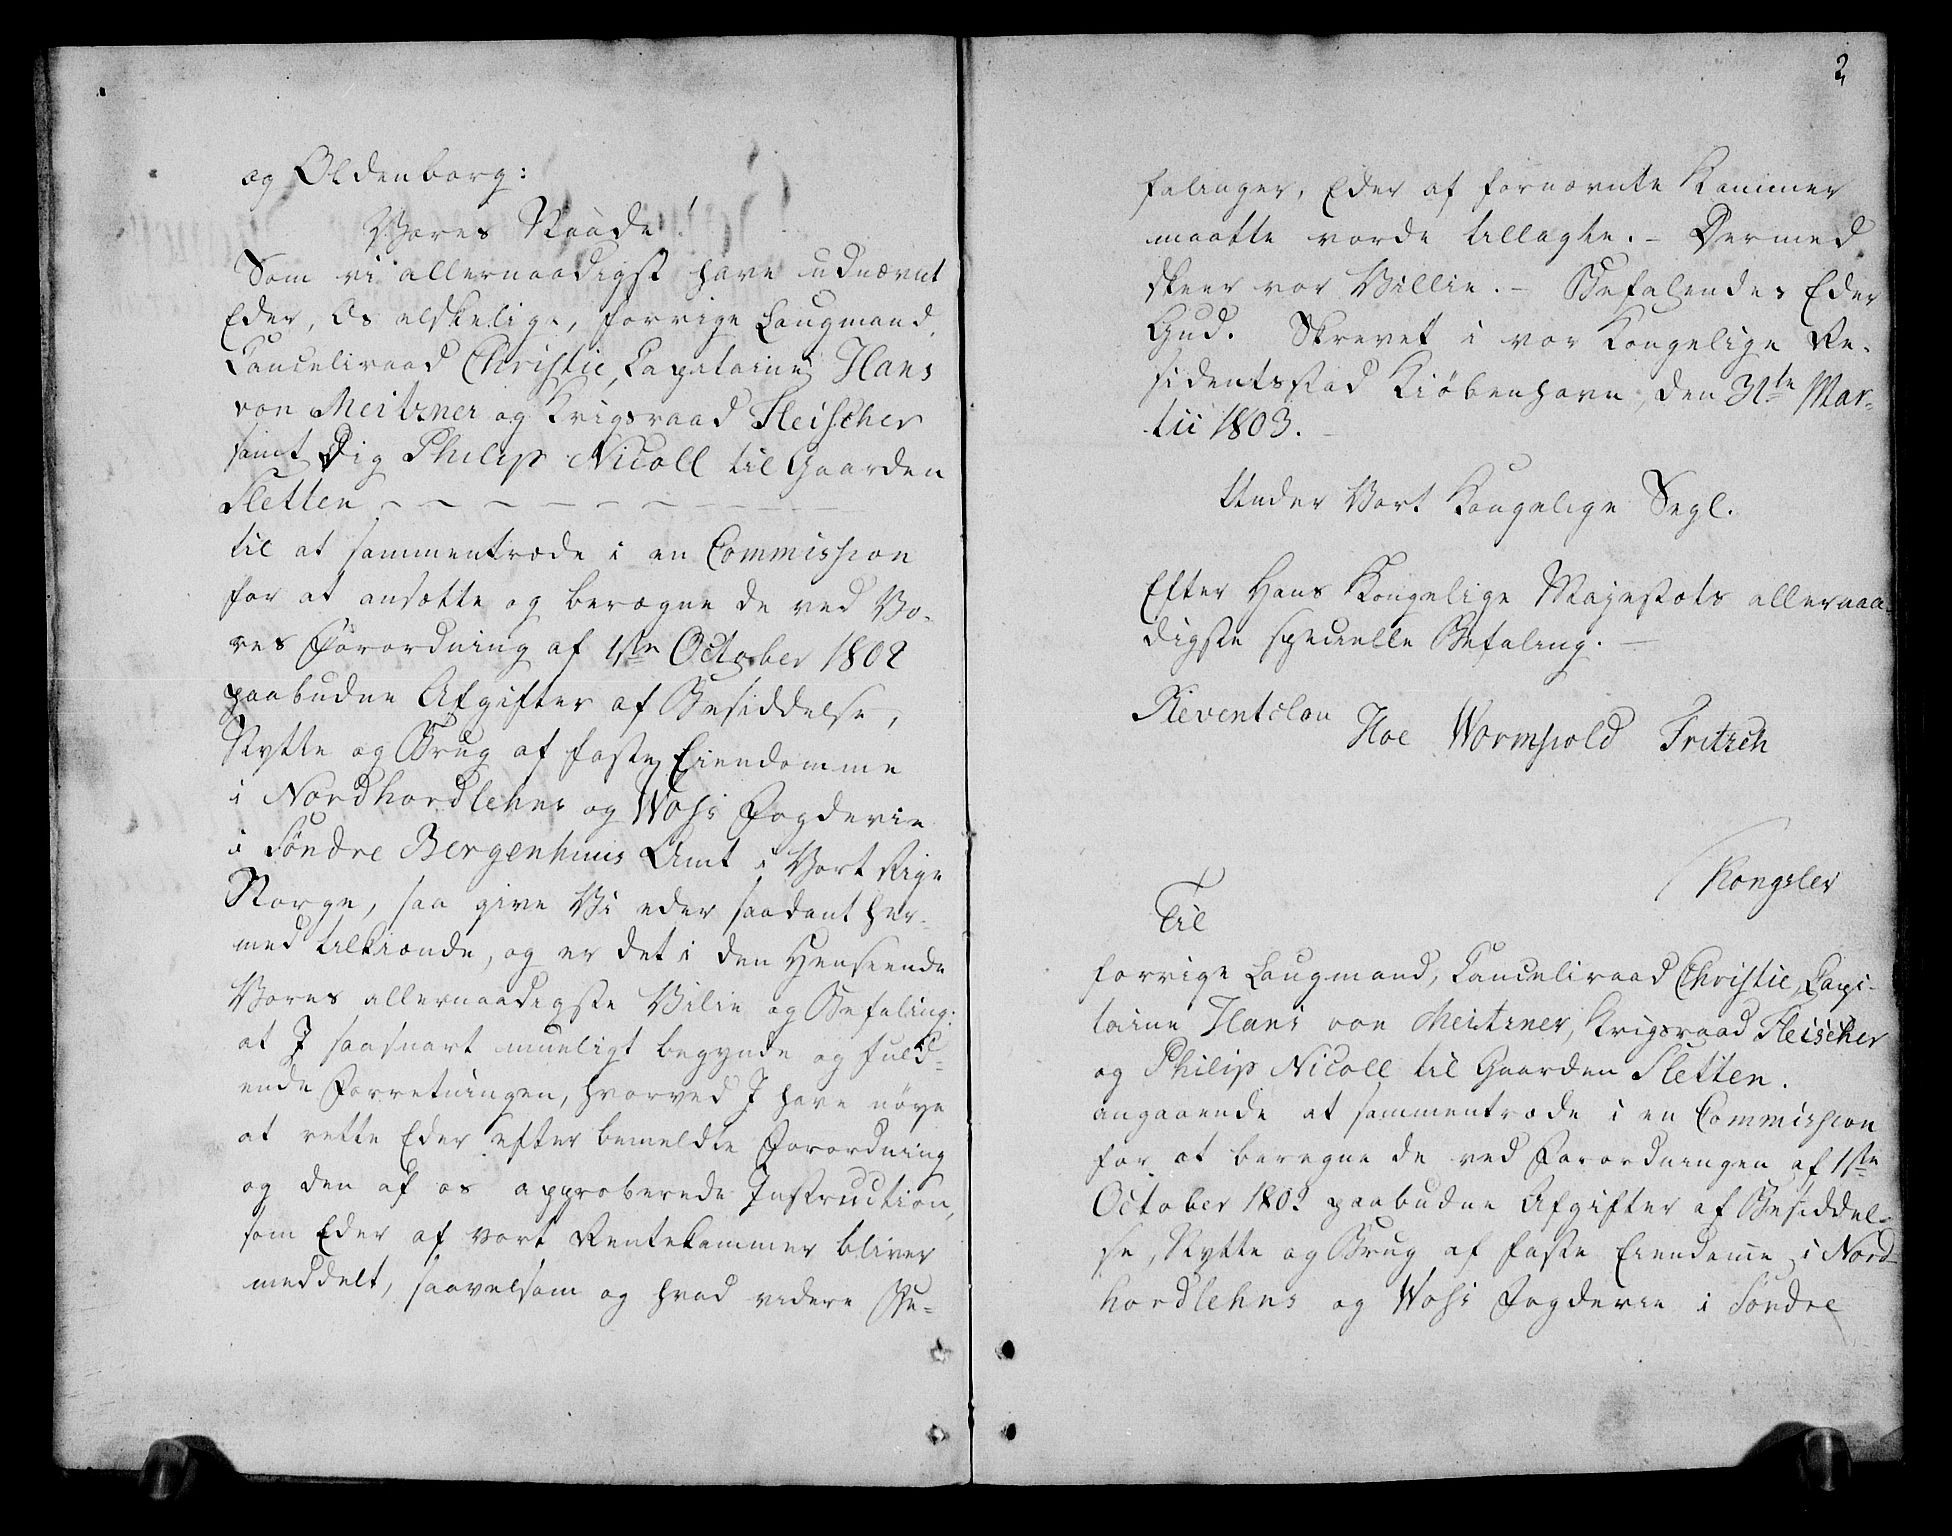 og Oldenborg:
Vores Naade!
Som vi allernaadigst have udnævnt
Eder, Os elskelige, forrige Laugmand,
Cancelieraad Christie, Capitaine Hans
von Meitzner og Krigsraad Fleischer
samt Dig Philip Nicoll til Gaarden
Sletten
til at sammentræde i en Commission
for at ansætte og beregne de ved Vo-
res Forordning af 1ste October 1802
paabudne Afgifter af Besiddelse,
Nytte og Brug af faste Eiendomme
i Nordhordlehns og Woss Fogderie
i Söndre Bergenhuus Amt i Vort Rige
Norge, saa give Vi eder saadant her-
med tilkiende, og er det i den Henseende
Vores allernaadigste Vilie og Befaling:
at I saasnart mueligt begynde og fuld-
ende Forretningen, hvorved I have nöye
at rette Eder efter bemeldte Forordning
og den af os approberede Instruction,
som Eder af vort Rentekammer bliver
meddelt, saavelsom og hvad videre Be-
2
falinger, Eder af fornævnte Kammer
maatte vorde tillagte. - Dermed
skeer vor Villie. - Befalendes Eder
Gud. Skrevet i vor Kongelige Re-
sidentsstad Kiöbenhavn, den 31te Mar-
tii 1803.
Under Vort Kongelige Segl.
Efter Hans Kongelige Majestæts allernaa-
digste specielle Befaling. -
Reventclou Hoe Wormskold Fritzch
Kongslev
Til
forrige Laugmand, Cancelieraad Christie, Capi-
taine Hans von Meitzner, Krigsraad Fleischer
og Philip Nicoll til Gaarden Sletten.
angaaende at sammentræde i en Commission
for at beregne de ved Forordningen af 1ste
October 1802 paabudne Afgifter af Besiddel-
se, Nytte og Brug af faste Eiendome i Nord-
hordlehns og Wosi Fogderie i Söndre